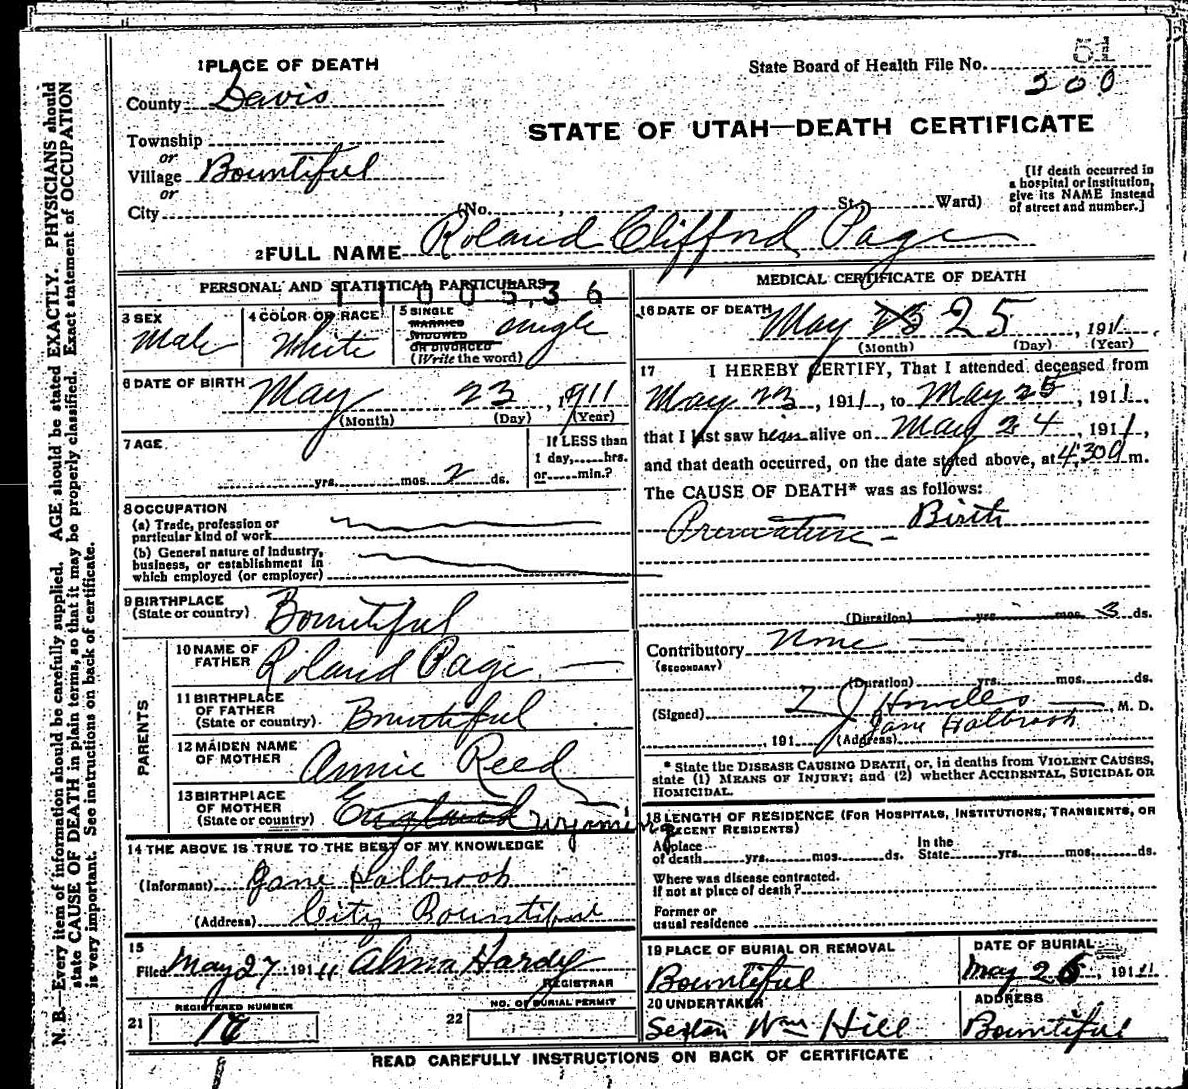 51
200
1 PLACE OF DEATH
State Board of Health File No.
County Davis
STATE OF UTAH—DEATH CERTIFICATE
Township
or
Village Bountiful
or
City (No. , St.; Ward)
[If death occurred in
a hospital or institution,
give its NAME instead
of street and number.]
2 FULL NAME Roland Clifford Page
PERSONAL AND STATISTICAL PARTICULARS
1100536
3 SEX
Male
4 COLOR OR RACE
White
5 SINGLE
MARRIED
WIDOWED
OR DIVORCED
(Write the word)
single
6 DATE OF BIRTH
May 23, 1911
(Month) (Day) (Year)
7 AGE
yrs. mos. 2 ds.
If LESS than
1 day, hrs.
or min.?
8 OCCUPATION
(a) Trade, profession or
particular kind of work
(b) General nature of industry,
business, or establishment in
which employed (or employer)
9 BIRTHPLACE
(State or country)
Bountiful
PARENTS
10 NAME OF
FATHER
Roland Page
11 BIRTHPLACE
OF FATHER
(State or country)
Bountiful
12 MAIDEN NAME
OF MOTHER
Annie Reed
13 BIRTHPLACE
OF MOTHER
(State or country)
England Wyoming
14 THE ABOVE IS TRUE TO THE BEST OF MY KNOWLEDGE
(Informant) Jane Holbrook
(Address) City Bountiful
15
Filed May 27 1911 Alma Hardy
REGISTRAR
REGISTERED NUMBER
21
NO. OF BURIAL PERMIT
22
MEDICAL CERTIFICATE OF DEATH
16 DATE OF DEATH
May 23 25, 1911
(Month) (Day) (Year)
17 I HEREBY CERTIFY, That I attended deceased from
May 23, 1911, to May 25, 1911,
that I last saw h alive on May 24, 1911,
and that death occurred, on the date stated above, at 4.30 a m.
The CAUSE OF DEATH* was as follows:
Premature Birth
(Duration) yrs. mos. 3 ds.
Contributory None
(SECONDARY)
(Duration) yrs. mos. ds.
(Signed) J Howells, M. D.
Jane Holbrook
, 191 (Address)
* State the DISEASE CAUSING DEATH, or, in deaths from VIOLENT CAUSES,
state (1) MEANS OF INJURY; and (2) whether ACCIDENTAL, SUICIDAL OR
HOMICIDAL.
18 LENGTH OF RESIDENCE (FOR HOSPITALS, INSTITUTIONS, TRANSIENTS, OR
RECENT RESIDENTS)
At place
of death yrs. mos. ds.
In the
State yrs. mos. ds.
Where was disease contracted,
if not at place of death?
Former or
usual residence
19 PLACE OF BURIAL OR REMOVAL
Bountiful
DATE OF BURIAL
May 26, 1911
20 UNDERTAKER
Sexton Wm Hill
ADDRESS
Bountiful
READ CAREFULLY INSTRUCTIONS ON BACK OF CERTIFICATE
N. B.—Every item of information should be carefully supplied. AGE should be stated EXACTLY. PHYSICIANS should
state CAUSE OF DEATH in plain terms, so that it may be properly classified. Exact statement of OCCUPATION
is very important. See instructions on back of certificate.